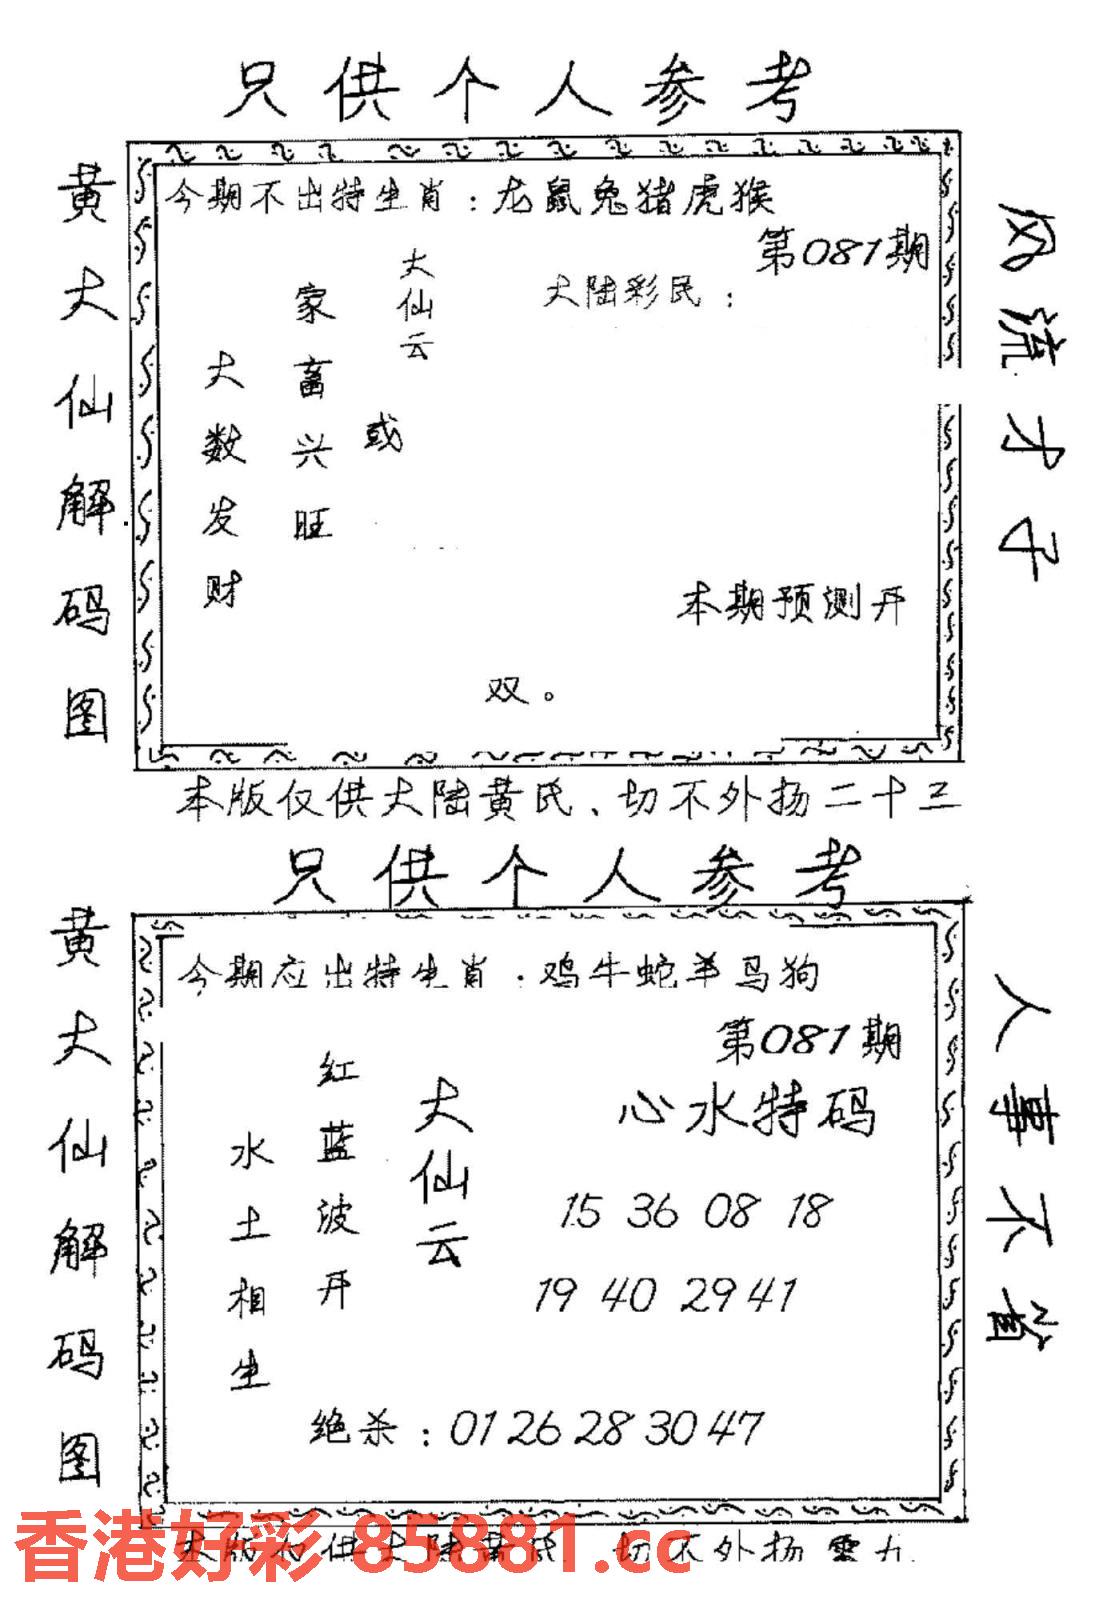 只供个人参考
黄大仙解码图
今期不出特生肖：龙鼠兔猪虎猴
第081期
大陆彩民：
大仙云
或
家畜兴旺
大数发财
本期预测开
双。
风流才子
本版仅供大陆黄民、切不外扬二十三
只供个人参考
黄大仙解码图
今期应出特生肖：鸡牛蛇羊马狗
第081期
心水特码
大仙云
红蓝波开
水土相生
15 36 08 18
19 40 29 41
绝杀：01 26 28 30 47
人事不省
本版仅供大陆黄民 切不外扬零九
香港好彩 85881.cc